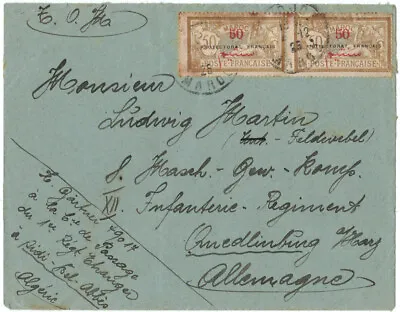 T. O. Ma
50 50
PROTECTORAT FRANÇAIS PROTECTORAT FRANÇAIS
POSTE FRANÇAISE POSTE FRANÇAISE
MAROC
Monsieur
Ludwig Martin
Feldwebel)
8. Masch.-Gew.-Komp.
XII. Infanterie-Regiment
Quedlinburg Harz
Allemagne
à la Cie de Passage
du 1er Regt Etranger
à Sidi-Bel-Abbès
Algérie